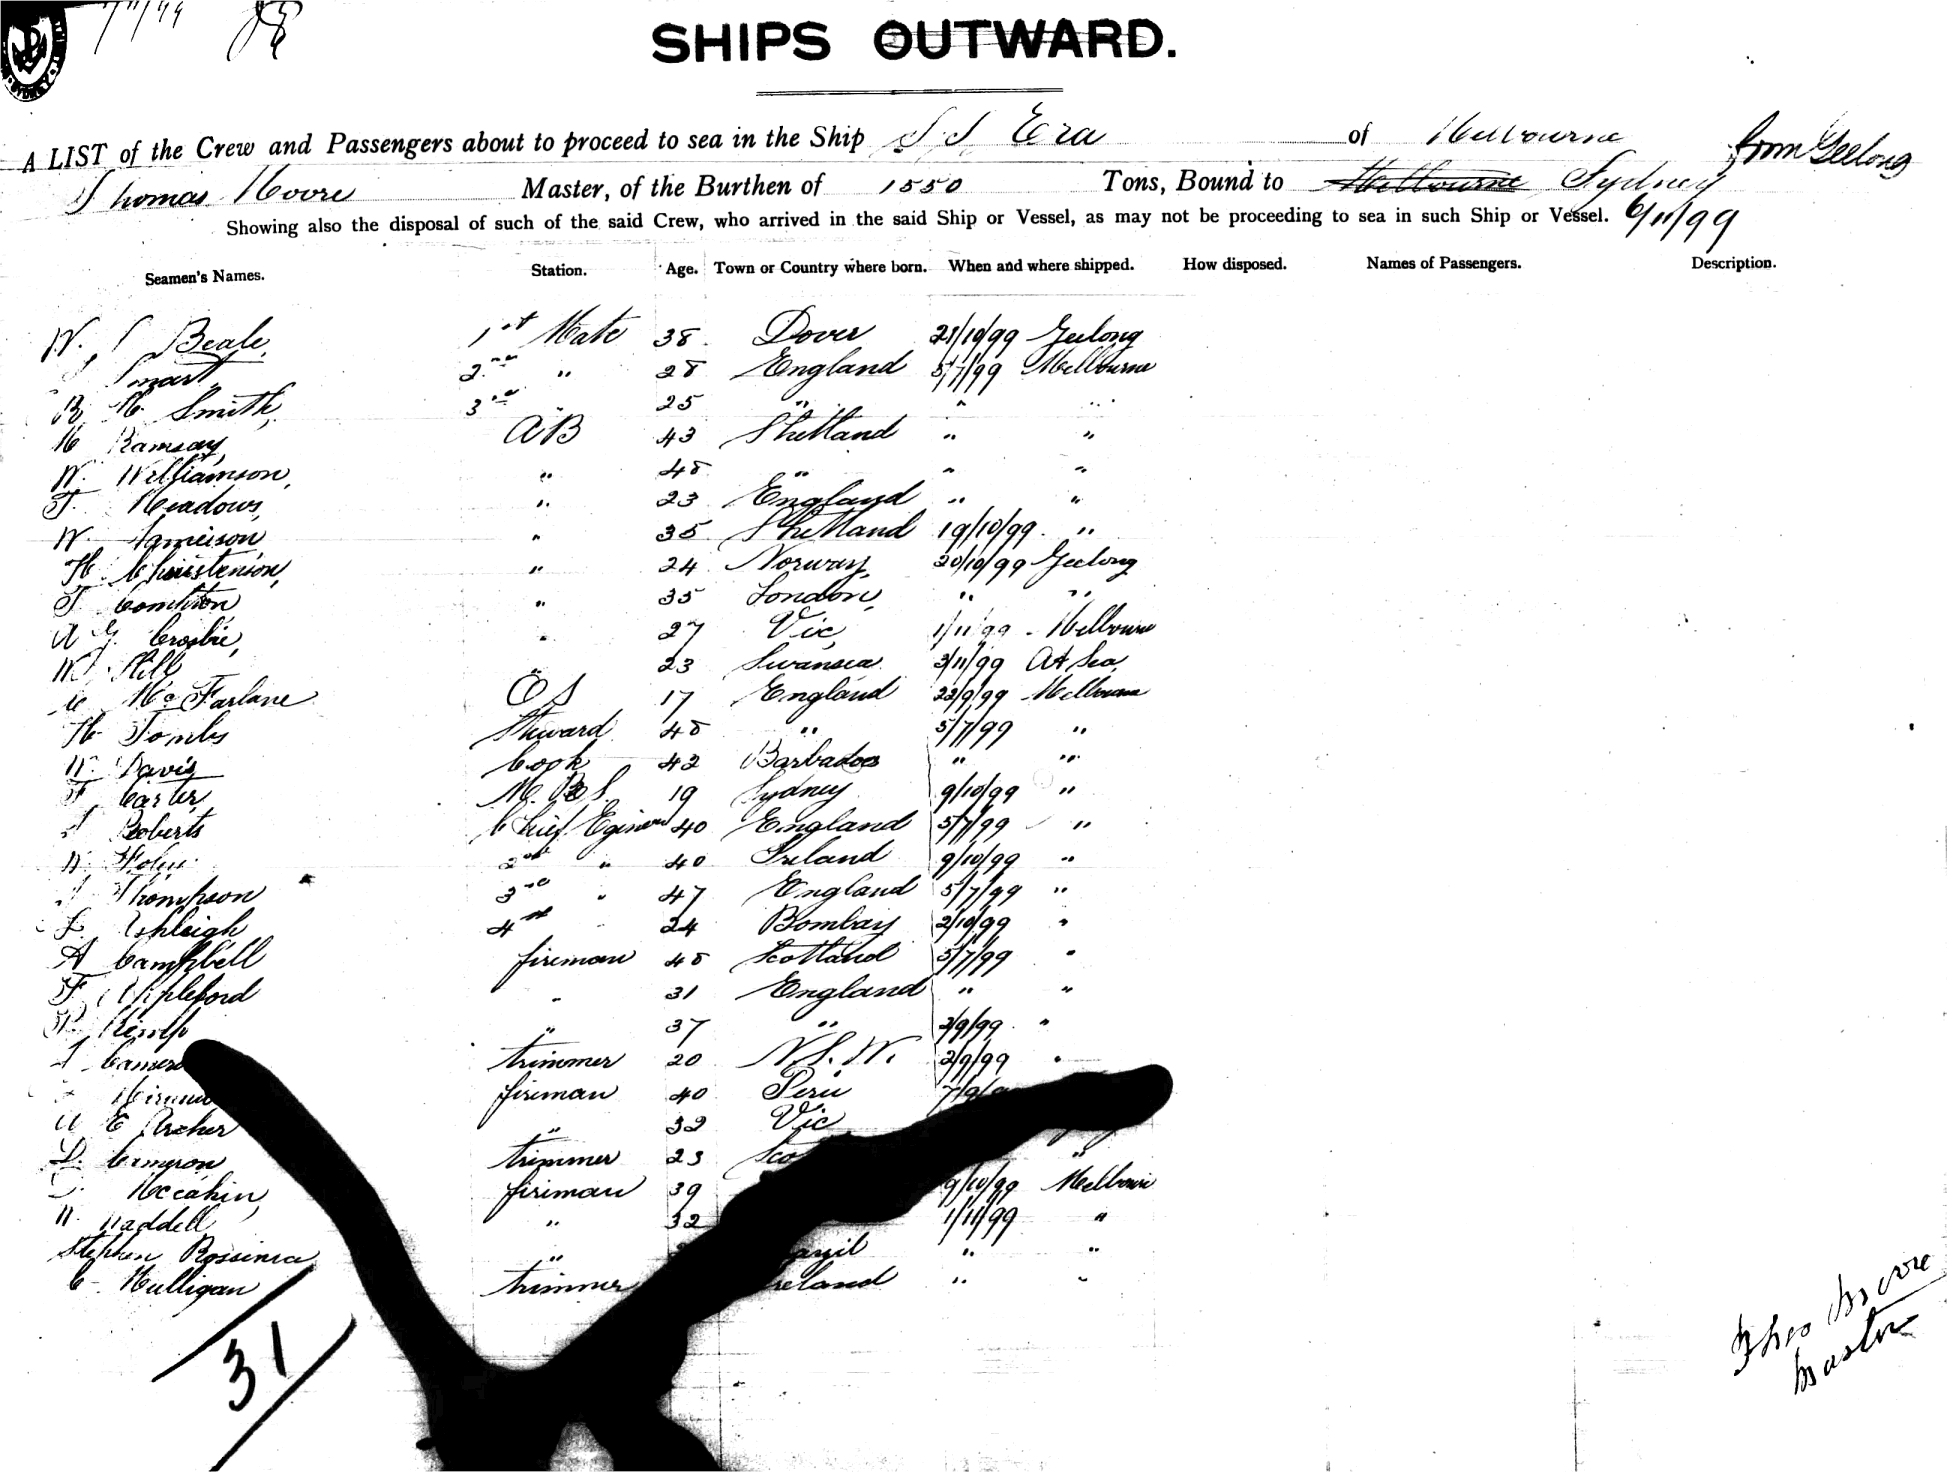 7/11/99
SHIPS OUTWARD.
A LIST of the Crew and Passengers about to proceed to sea in the Ship S S Era of Melbourne from Geelong
Thomas Moore Master, of the Burthen of 1550 Tons, Bound to Melbourne Sydney
Showing also the disposal of such of the said Crew, who arrived in the said Ship or Vessel, as may not be proceeding to sea in such Ship or Vessel. 6/11/99
Seamen's Names. Station. Age. Town or Country where born. When and where shipped. How disposed. Names of Passengers. Description.
W. Beale, 1st Mate 38. Dover /10/99 Geelong
Smart, 2nd " 28 England 5/7/99 Melbourne
H. Smith, 3rd 25 " " "
Ramsay, AB 43 Shetland " "
W. Williamson, " 48 " " "
T. Meadows, " 23 England " "
W. Jamieson " 35 Shetland 19/10/99. "
H. Christenson, " 24 Norway, 20/10/99 Geelong
" 35 London, " "
A G. Crosbie, " 27 Vic, 1/11/99 - Melbourne
Hill " 23 Swansea /11/99 At Sea,
McFarlane OS 17 England 22/9/99 Melbourne
H Tombs Steward 48 " 5/7/99 "
W. Davis Cook 42 Barbados " "
F Carter, 19 Sydney 9/10/99 "
Roberts Chief Eginer 40 England 5/7/99 "
2nd " 40 Ireland 9/10/99 "
Thompson 3rd " 47 England 5/7/99 "
Ashleigh 4th 24 Bombay 2/10/99 "
A Campbell fireman 48 Scotland 5/7/99 "
F. Appleford " 31 England " "
Kemp " 37 " 2/9/99. "
trimmer 20 N.S.W. 2/9/99 "
fireman 40 Peru
E Archer " 32 Vic
D. Cameron trimmer 23 "
fireman 39 9/10/99 Melbourne
W. Waddell " 32 1/11/99 "
Stephen " " "
C Mulligan trimmer " "
31
Thos Moore
Master